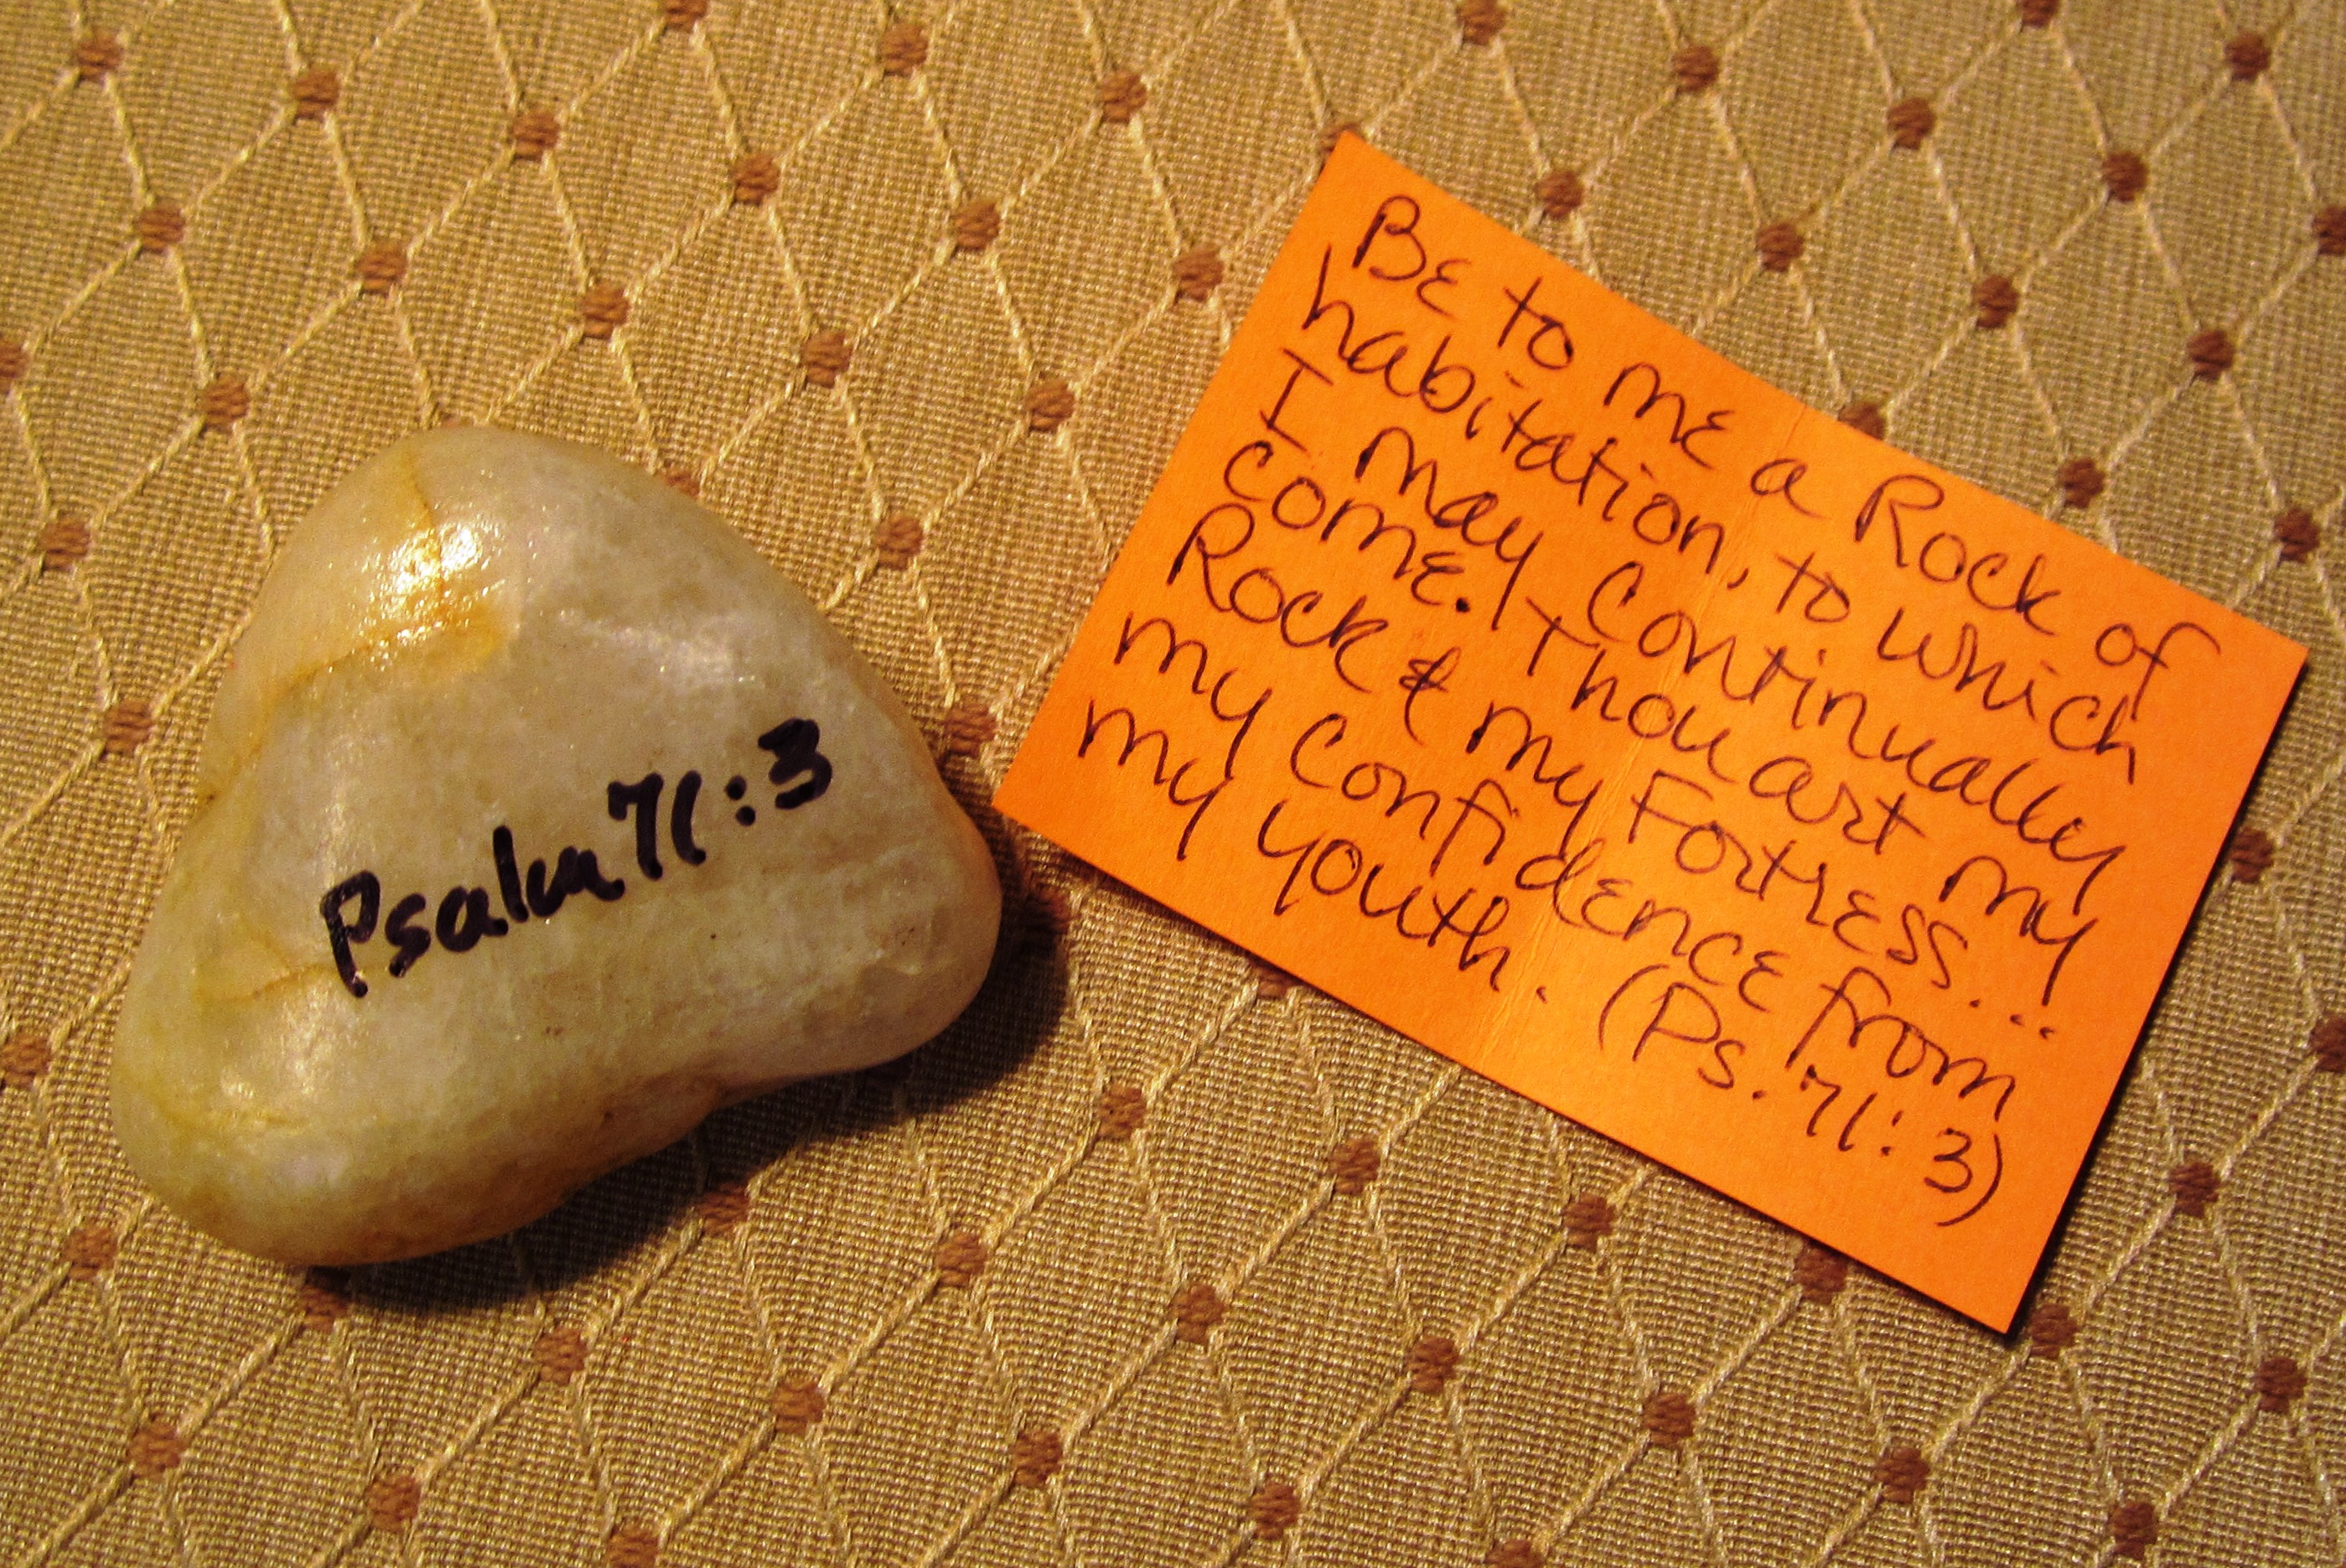 Psalm 71:3
Be to me a Rock of
habitation, to which
I may continually
come. Thou art my
Rock & my Fortress...
my confidence from
my youth. (Ps. 71:3)